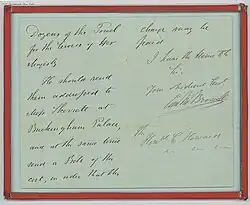 Dozens of the Pencil
for the Service of Her
Majesty
He should send
them addressed to
Miss Skerrett at
Buckingham Palace,
and at the same time
send a Bill of the
cost, in order that the
charge may be
paid
I have the Honor to be
Your Obedient Servt
The
Honble C. Howard